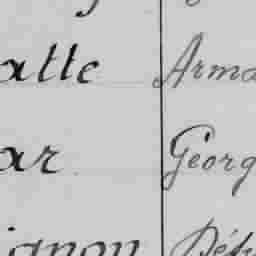 alle Arma
ar Georg
ignon Dés